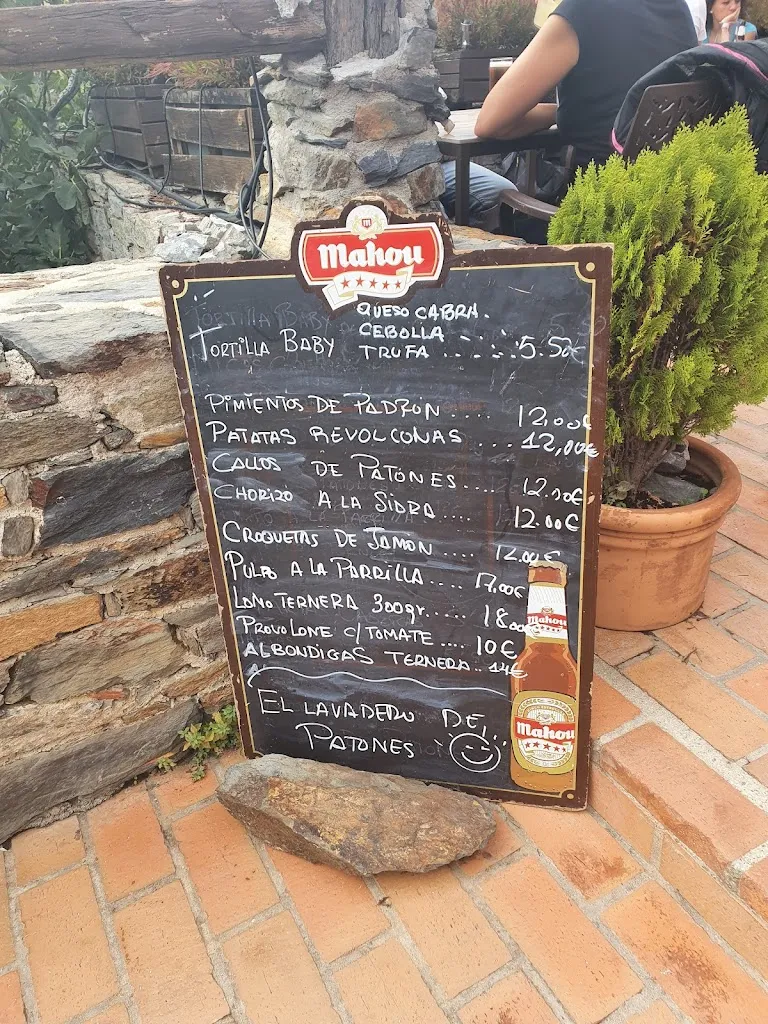 Mahou
QUESO CABRA.
CEBOLLA
TORTILLA BABY TRUFA ...... 5.50€
PIMIENTOS DE PADRÓN .... 12,00€
PATATAS REVOLCONAS ... 12,00€
CALLOS DE PATONES.... 12.00€
CHORIZO A LA SIDRA .... 12.00€
CROQUETAS DE JAMÓN .... 12.00€
PULPO A LA PARRILLA .... 17.00€
LOMO TERNERA 300gr..... 18.00
PROVOLONE C/TOMATE .... 10€
ALBONDIGAS TERNERA.. 14€
EL LAVADERO DE
PATONES
Mahou
Mahou